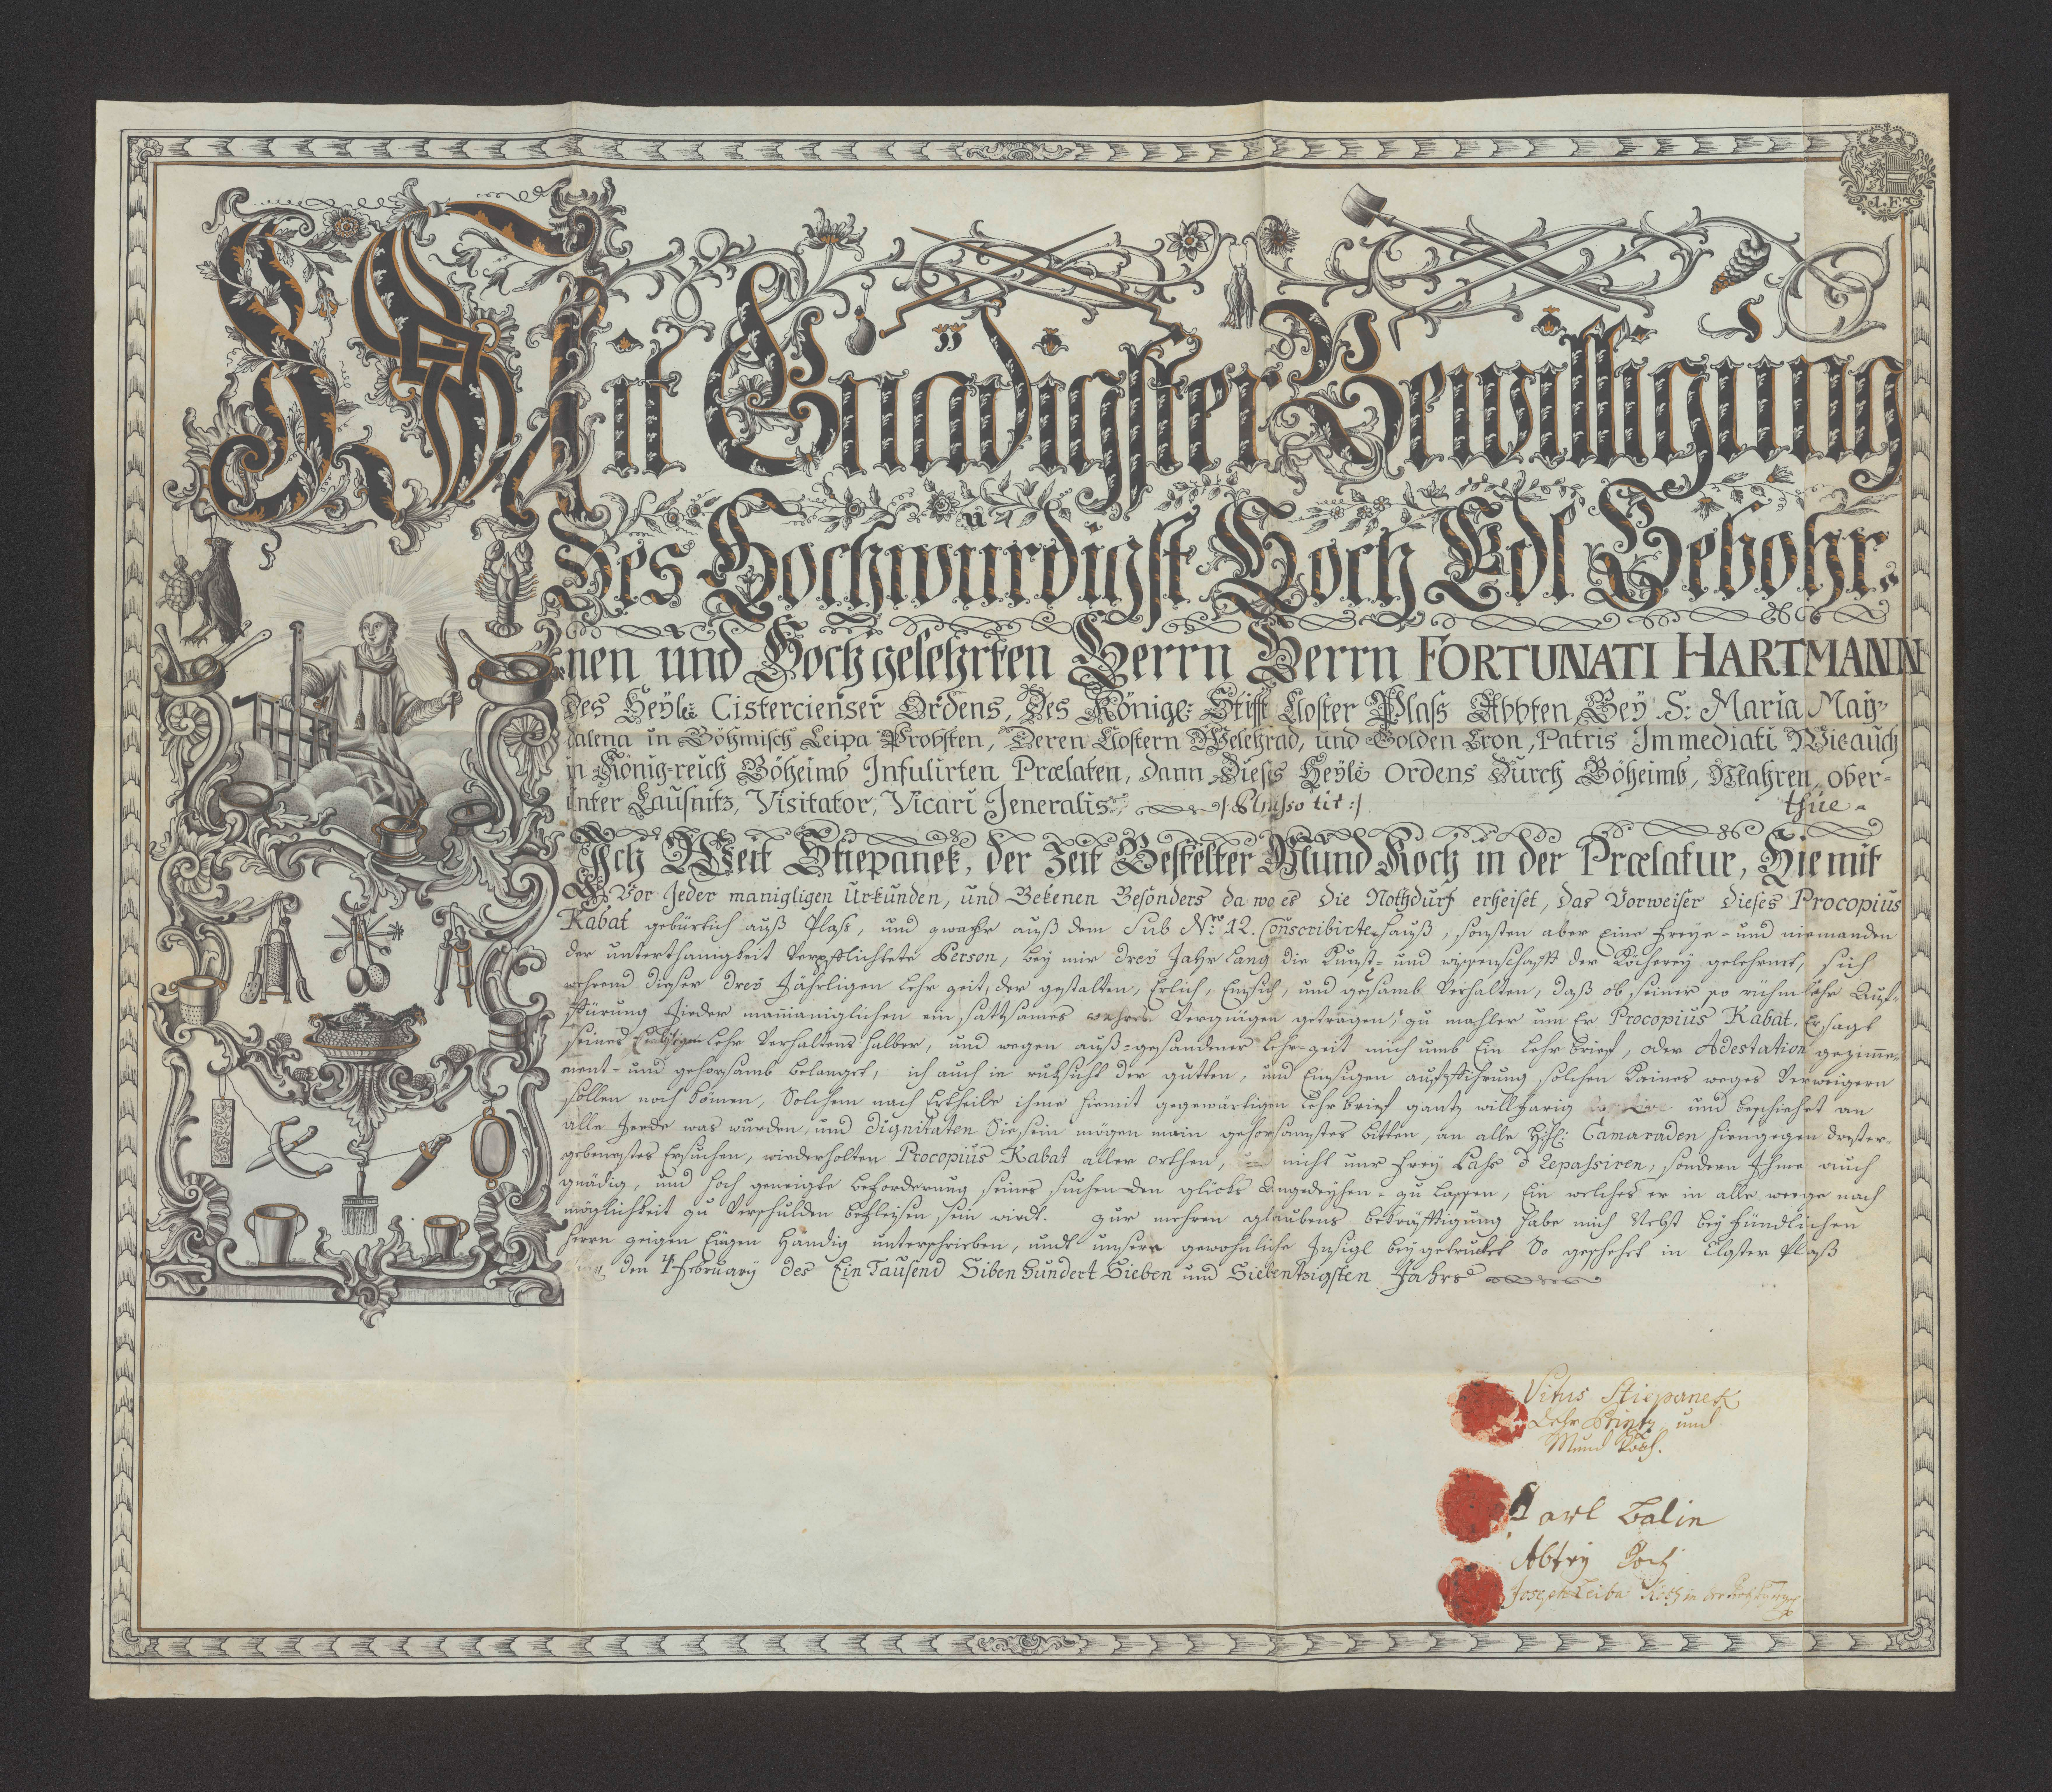 Mit Gnädigster Bewilligung
Des Hochwürdigst Hoch Edl Gebohr„
nen und Hochgelehrten Herrn Herrn FORTUNATI HARTMANN
des Heyl: Cistercienser Ordens, Des Königl: Stifft Closter Plass Abbten Bey S: Maria May„
dalena in Böhmisch Leipa Probsten, Deren Clostern Welehrad, und Golden Cron, Patris Immediati Wie auch
in König-reich Böheimb Infulirten Prælaten, dann Dieses Heyl: Ordens Durch Böheimb, Mahren, ober-
unter Lausnitz, Visitator, Vicari Jeneralis, tit:
Ich Weit Stiepanek, der Zeit Bestelter Mund Koch in der Prælatur, Hiemit
Vor Jeder manigligen Urkunden, und Bekenen Besonders da wo es Die Nothdurf erheiset, Das Vorweiser Dieses Procopius
Kabat gebürtich auß Plass, und zwahr auß dem Sub Nro 12. Conscribirten hauß, sonsten aber Eine freye- und niemanden
der unterthänigkeit Verpflichtete Person, bey mir drey Jahr lang die Kunst- und wissenschafft der Köcherey gelehrnet, sich
wehrend dieser drey Jährligen lehr zeit, der gestalten, Erlich, Emsich, und gehsamb Verhalten, daß ob seiner so rühm
führung Jieder manniglichen ein sattsames wahres Vergnügen getragen, zu mahler um Er Procopius Kabat, Ersagt
seines lehr Verhaltens halber, und wegen auß-gestandener lehr-zeit mich umb Ein lehr brief, oder Adestation gezime-
ment- und gehorsamb belanget, ich auch in ruksicht der gutten, und Emsigen aufführung solchen Kaines weges Verweigern
sollen noch können, Solchem nach Ertheile ihme hiemit gegewärtigen Lehr brief gantz willfarig und beschiehet an
alle Jerde was würden, und dignitäten Sie sein mögen mein gehorsamstes bitten, an alle Camaraden hiengegen dinster-
gebenestes Ersuchen, wiederholten Procopius Kabat aller orthen, nicht nur frey Pass Repassiren, sondern Ihme auch
gnädig, und hoch geneigte beförderung seines suchen den glicks Angedeyhen zu lassen, Ein welches er in alle weege nach
möglichkeit zu Verschulden befleisen sein wirdt. Zur mehren glaubens bekräfftigung habe mich Nebst bey fündlichen
Herrn zeigen Eugen Händig unterschrieben, undt unsere gewohnliche Insigl beygetrucket So geschehet in Closter Plaß
den 4 February des Ein Tausend Siben Hundert Sieben und Siebentzigsten Jahrs
Vitus Stiepanek
Lehr Printz und
Mund Koch.
Karl Balin
Abtey Koch
Joseph